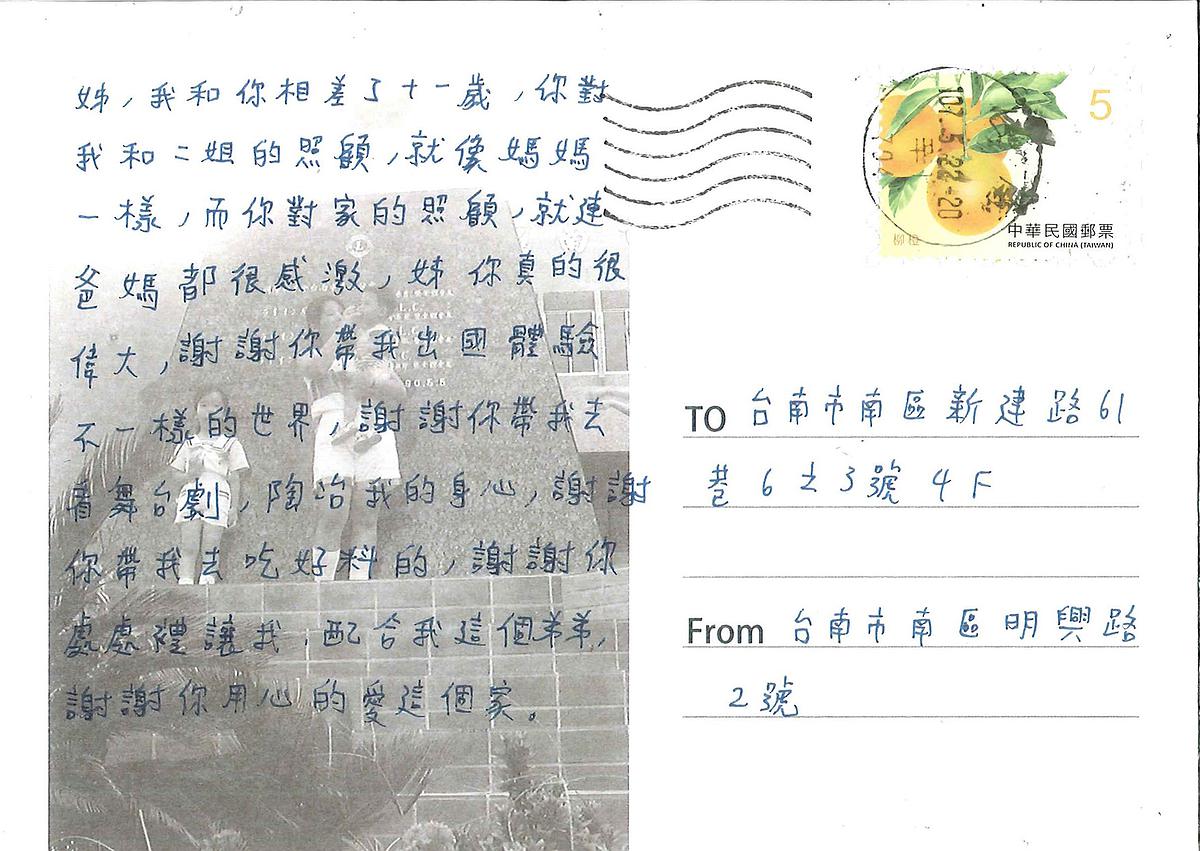 姊，我和你相差了十一歲，你對
我和二姐的照顧，就像媽媽
一樣，而你對家的照顧，就連
爸媽都很感激，姊你真的很
偉大，謝謝你帶我出國體驗
不一樣的世界，謝謝你帶我去
看舞台劇，陶冶我的身心，謝謝
你帶我去吃好料的，謝謝你
處處禮讓我，配合我這個弟弟，
謝謝你用心的愛這個家。
L.C.
L.C.
L.C.
90.5.5
5
107.5.22.-20
柳橙
中華民國郵票
REPUBLIC OF CHINA (TAIWAN)
TO 台南市南區新建路61
巷6之3號4F
From 台南市南區明興路
2號